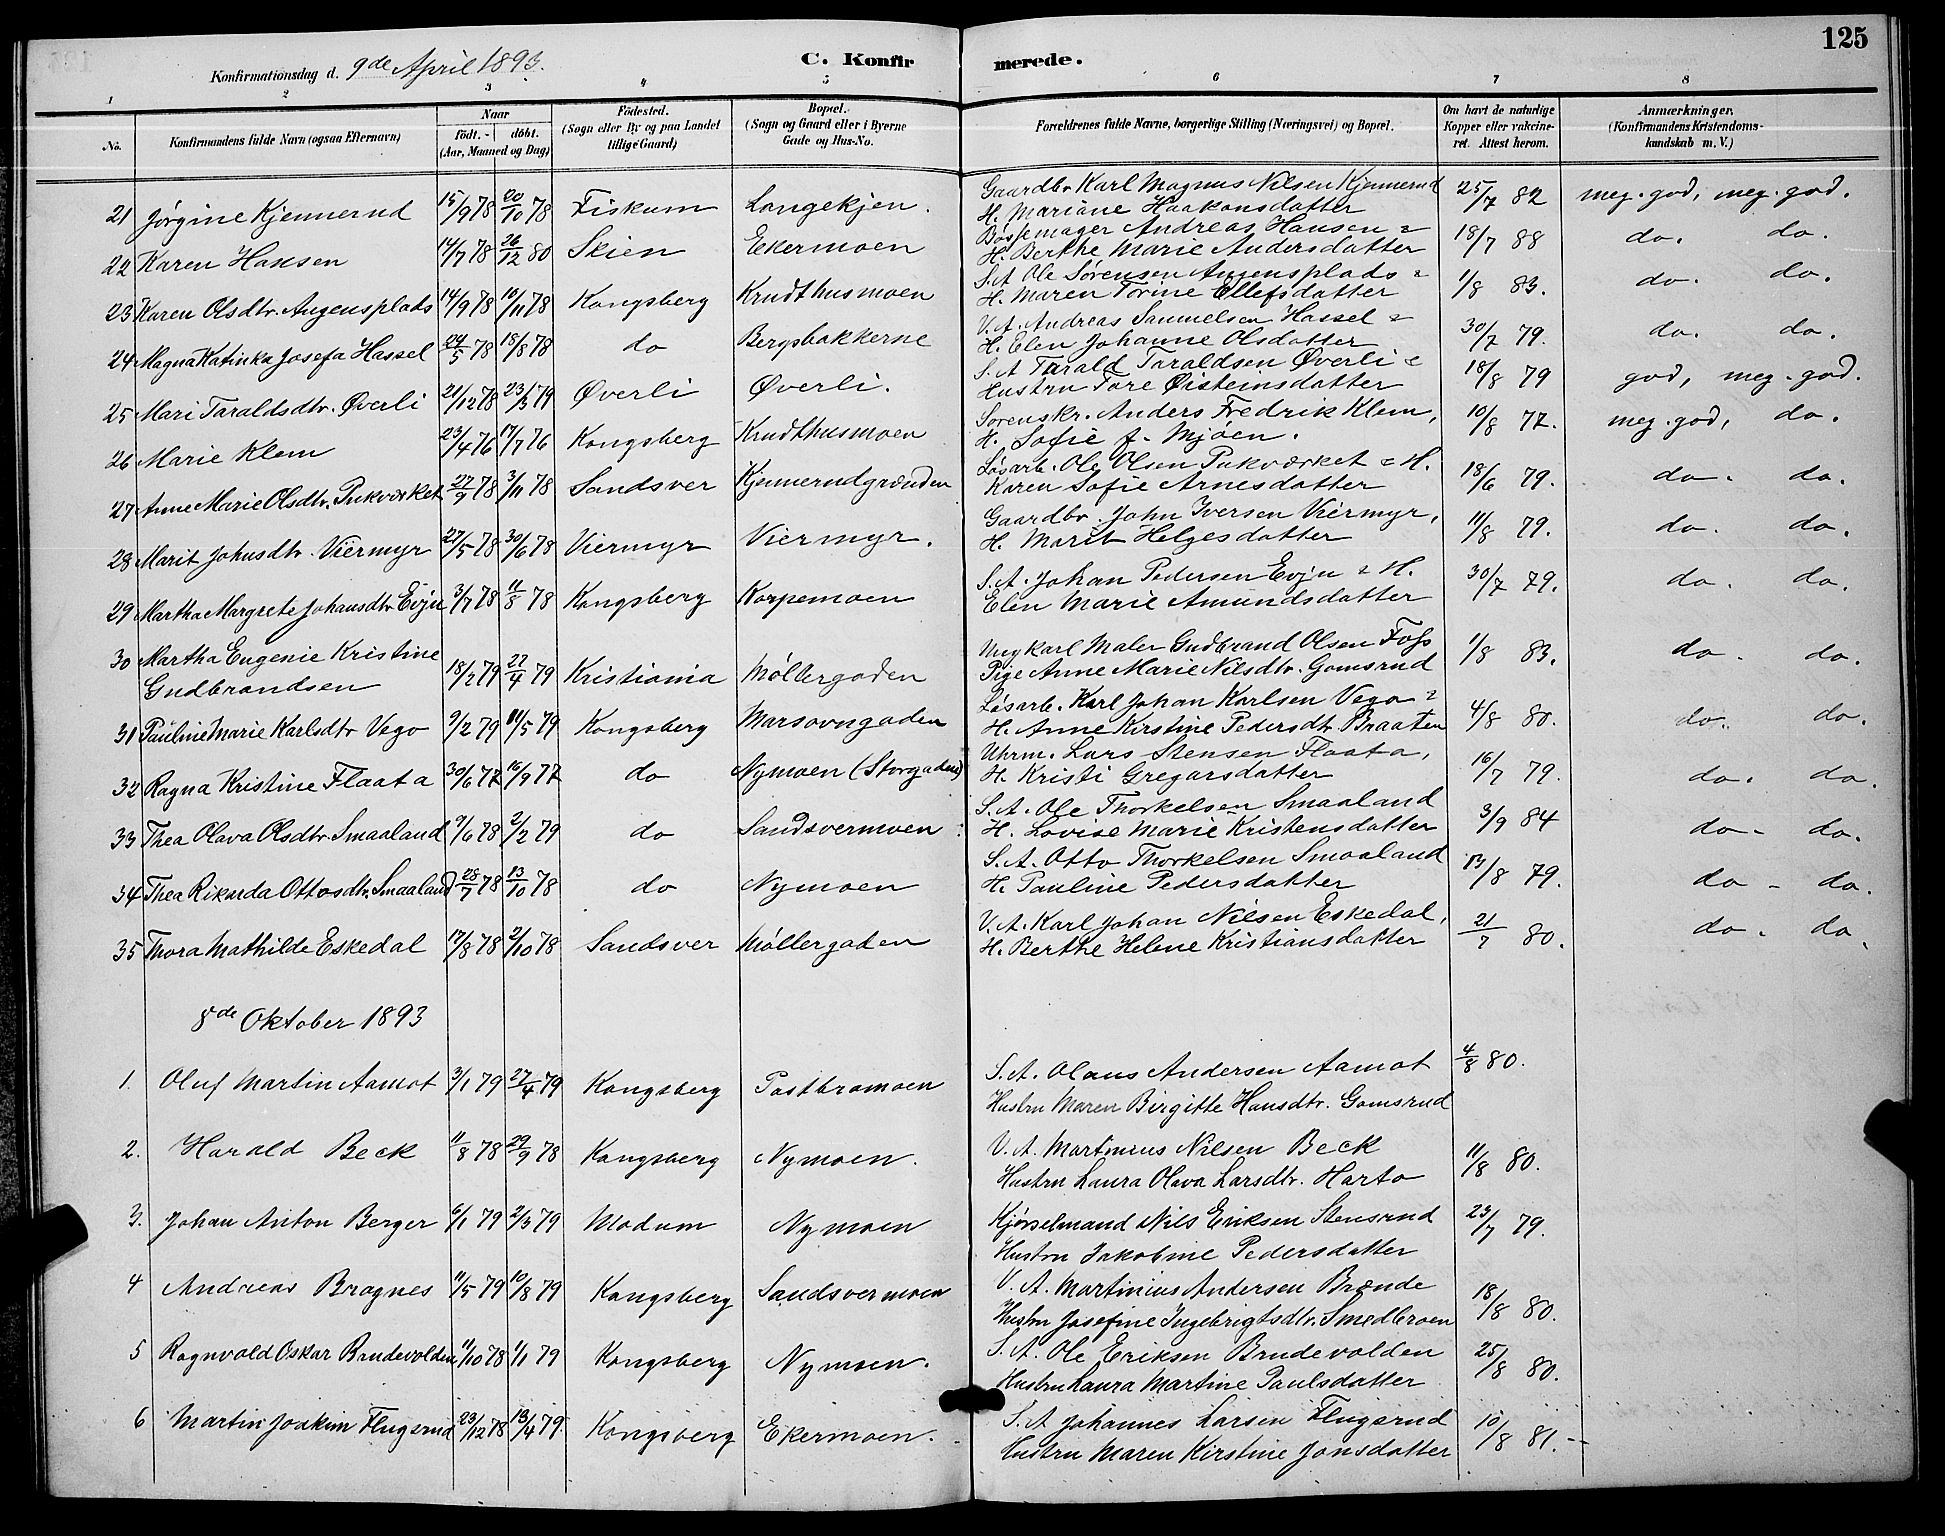 125
Konfirmationsdag d. 9de April 1893.
C. Konfirmerede.
1 2 3 4 5 6 7 8
No.
Konfirmandens fulde Navn (ogsaa Efternavn)
Naar
födt. - döbt.
(Aar, Maaned og Dag)
Födested.
(Sogn eller By og paa Landet
tillige Gaard)
Bopæl.
(Sogn og Gaard eller i Byerne
Gade og Hus-No.
Forældrenes fulde Navne, borgerlige Stilling (Næringsvei) og Bopæl.
Om havt de naturlige
Kopper eller vakcine-
ret. Attest herom.
Anmærkninger.
(Konfirmandens Kristendoms-
kundskab m. V.)
21 Jørgine Kjennerud 15/9 78 20/10 78 Fiskum Langekjen. Gaardbr. Karl Magnus Nilsen Kjennerud 25/7 82 meg. god, meg. god.
H. Mariane Haakonsdatter
22 Karen Hansen 14/7 78 26/12 80 Skien Ekermoen Bøssemager Andreas Hansen & 18/7 88 do. do.
H. Berthe Marie Andersdatter
23 Karen Olsdtr. Augensplads 14/9 78 10/11 78 Kongsberg Krudthusmoen S. A. Ole Sørensen Augensplads & 1/8 83. do. do.
H. Maren Torine Ellefsdatter
24 Magna Katinka Josefa Hassel 24/5 78 18/8 78 do Bergsbakkerne V. A. Andreas Samuelsen Hassel & 30/7 79. do. do.
H. Elen Johanne Olsdatter
25 Mari Taraldsdtr. Øverli 21/12 78 23/3 79 Øverli Øverli. S. A Tarald Taraldsen Øverli & 18/8 79 god, meg. god.
Hustru Tore Øisteinsdatter
26 Marie Klem 23/4 76 17/7 76 Kongsberg Krudthusmoen Sorenskr. Anders Fredrik Klem, 10/8 77. meg. god, do.
H. Sofie f. Mjøen.
27 Anne Marie Olsdtr. Pukværket 27/9 78 3/11 78 Sandsver Kjennerudgrænden Løsarb. Ole Olsen Pukværket & H. 18/6 79. do. do.
Karen Sofie Arnesdatter
28 Marit Johnsdtr. Viermyr 27/5 78 30/6 78 Viermyr Viermyr. Gaardbr. John Iversen Viermyr, 11/8 79. do. do.
H. Marit Helgesdatter
29 Martha Margrete Johansdtr Evju 3/7 78 11/8 78 Kongsberg Korpemoen S. A. Johan Pedersen Evju & H. 30/7 79. do. do.
Elen Marie Amundsdatter
30 Martha Eugenie Kristine
Gudbrandsen 18/2 79 27/4 79 Kristiania Møllergaden Ungkarl Maler Gudbrand Olsen Foss 1/8 83. do. do.
Pige Anne Marie Nilsdtr. Gomsrud
31 Pauline Marie Karlsdtr Vego 9/2 79 11/5 79 Kongsberg Marsovngaden Løsarb. Karl Johan Karlsen Vego & 4/8 80. do. do.
H. Anne Kirstine Pedersdtr. Braaten
32 Ragna Kristine Flaata 30/6 77 16/9 77 do Nymoen (Storgaden) Uhrm. Lars Stensen Flaata, 16/7 79. do. do.
H. Kristi Gregarsdatter
33 Thea Olava Olsdtr. Smaaland 9/6 78 2/2 79 do Sandsvermoen S. A. Ole Thorkelsen Smaaland 3/9 84 do. do.
H. Lovise Marie Kristensdatter
34 Thea Rikarda Ottosdtr. Smaaland 28/7 78 13/10 78 do Nymoen S. A. Otto Thorkelsen Smaaland 13/8 79. do - do.
H. Pauline Pedersdatter
35 Thora Mathilde Eskedal 17/8 78 2/10 78 Sandsver Møllergaden V. A. Karl Johan Nilsen Eskedal, 21/7 80. do. do.
H. Berthe Helene Kristiansdatter
8de Oktober 1893
1. Oluf Martin Aamot 3/1 79 27/4 79 Kongsberg Postbromoen S. A. Olaus Andersen Aamot 4/8 80.
Hustru Maren Birgitte Hansdtr. Gomsrud
2. Harald Beck 11/8 78 29/9 78 Kongsberg Nymoen. V. A. Martinius Nilsen Beck 11/8 80.
Hustru Laura Olava Larsdtr. Harto
3. Johan Anton Berger 6/1 79 2/3 79 Modum Nymoen Kjørselmand Nils Eriksen Stensrud 23/7 79.
Hustru Jakobine Pedersdatter
4 Andreas Bragnes 11/5 79 10/8 79 Kongsberg Sandsvermoen V. A. Martinius Andersen Brænde 18/8 80.
Hustru Josefine Ingebrigtsdtr. Smedbroen
5 Ragnvald Oskar Brudevolden 11/10 78 1/1 79 Kongsberg Nymoen. S. A. Ole Eriksen Brudevolden 25/8 80.
Hustru Laura Martine Paulsdatter
6 Martin Joakim Flugsrud 23/12 78 13/4 79. Kongsberg Ekermoen. S. A Johannes Larsen Flugsrud 10/8 81. --
Hustru Maren Kirstine Jonsdatter